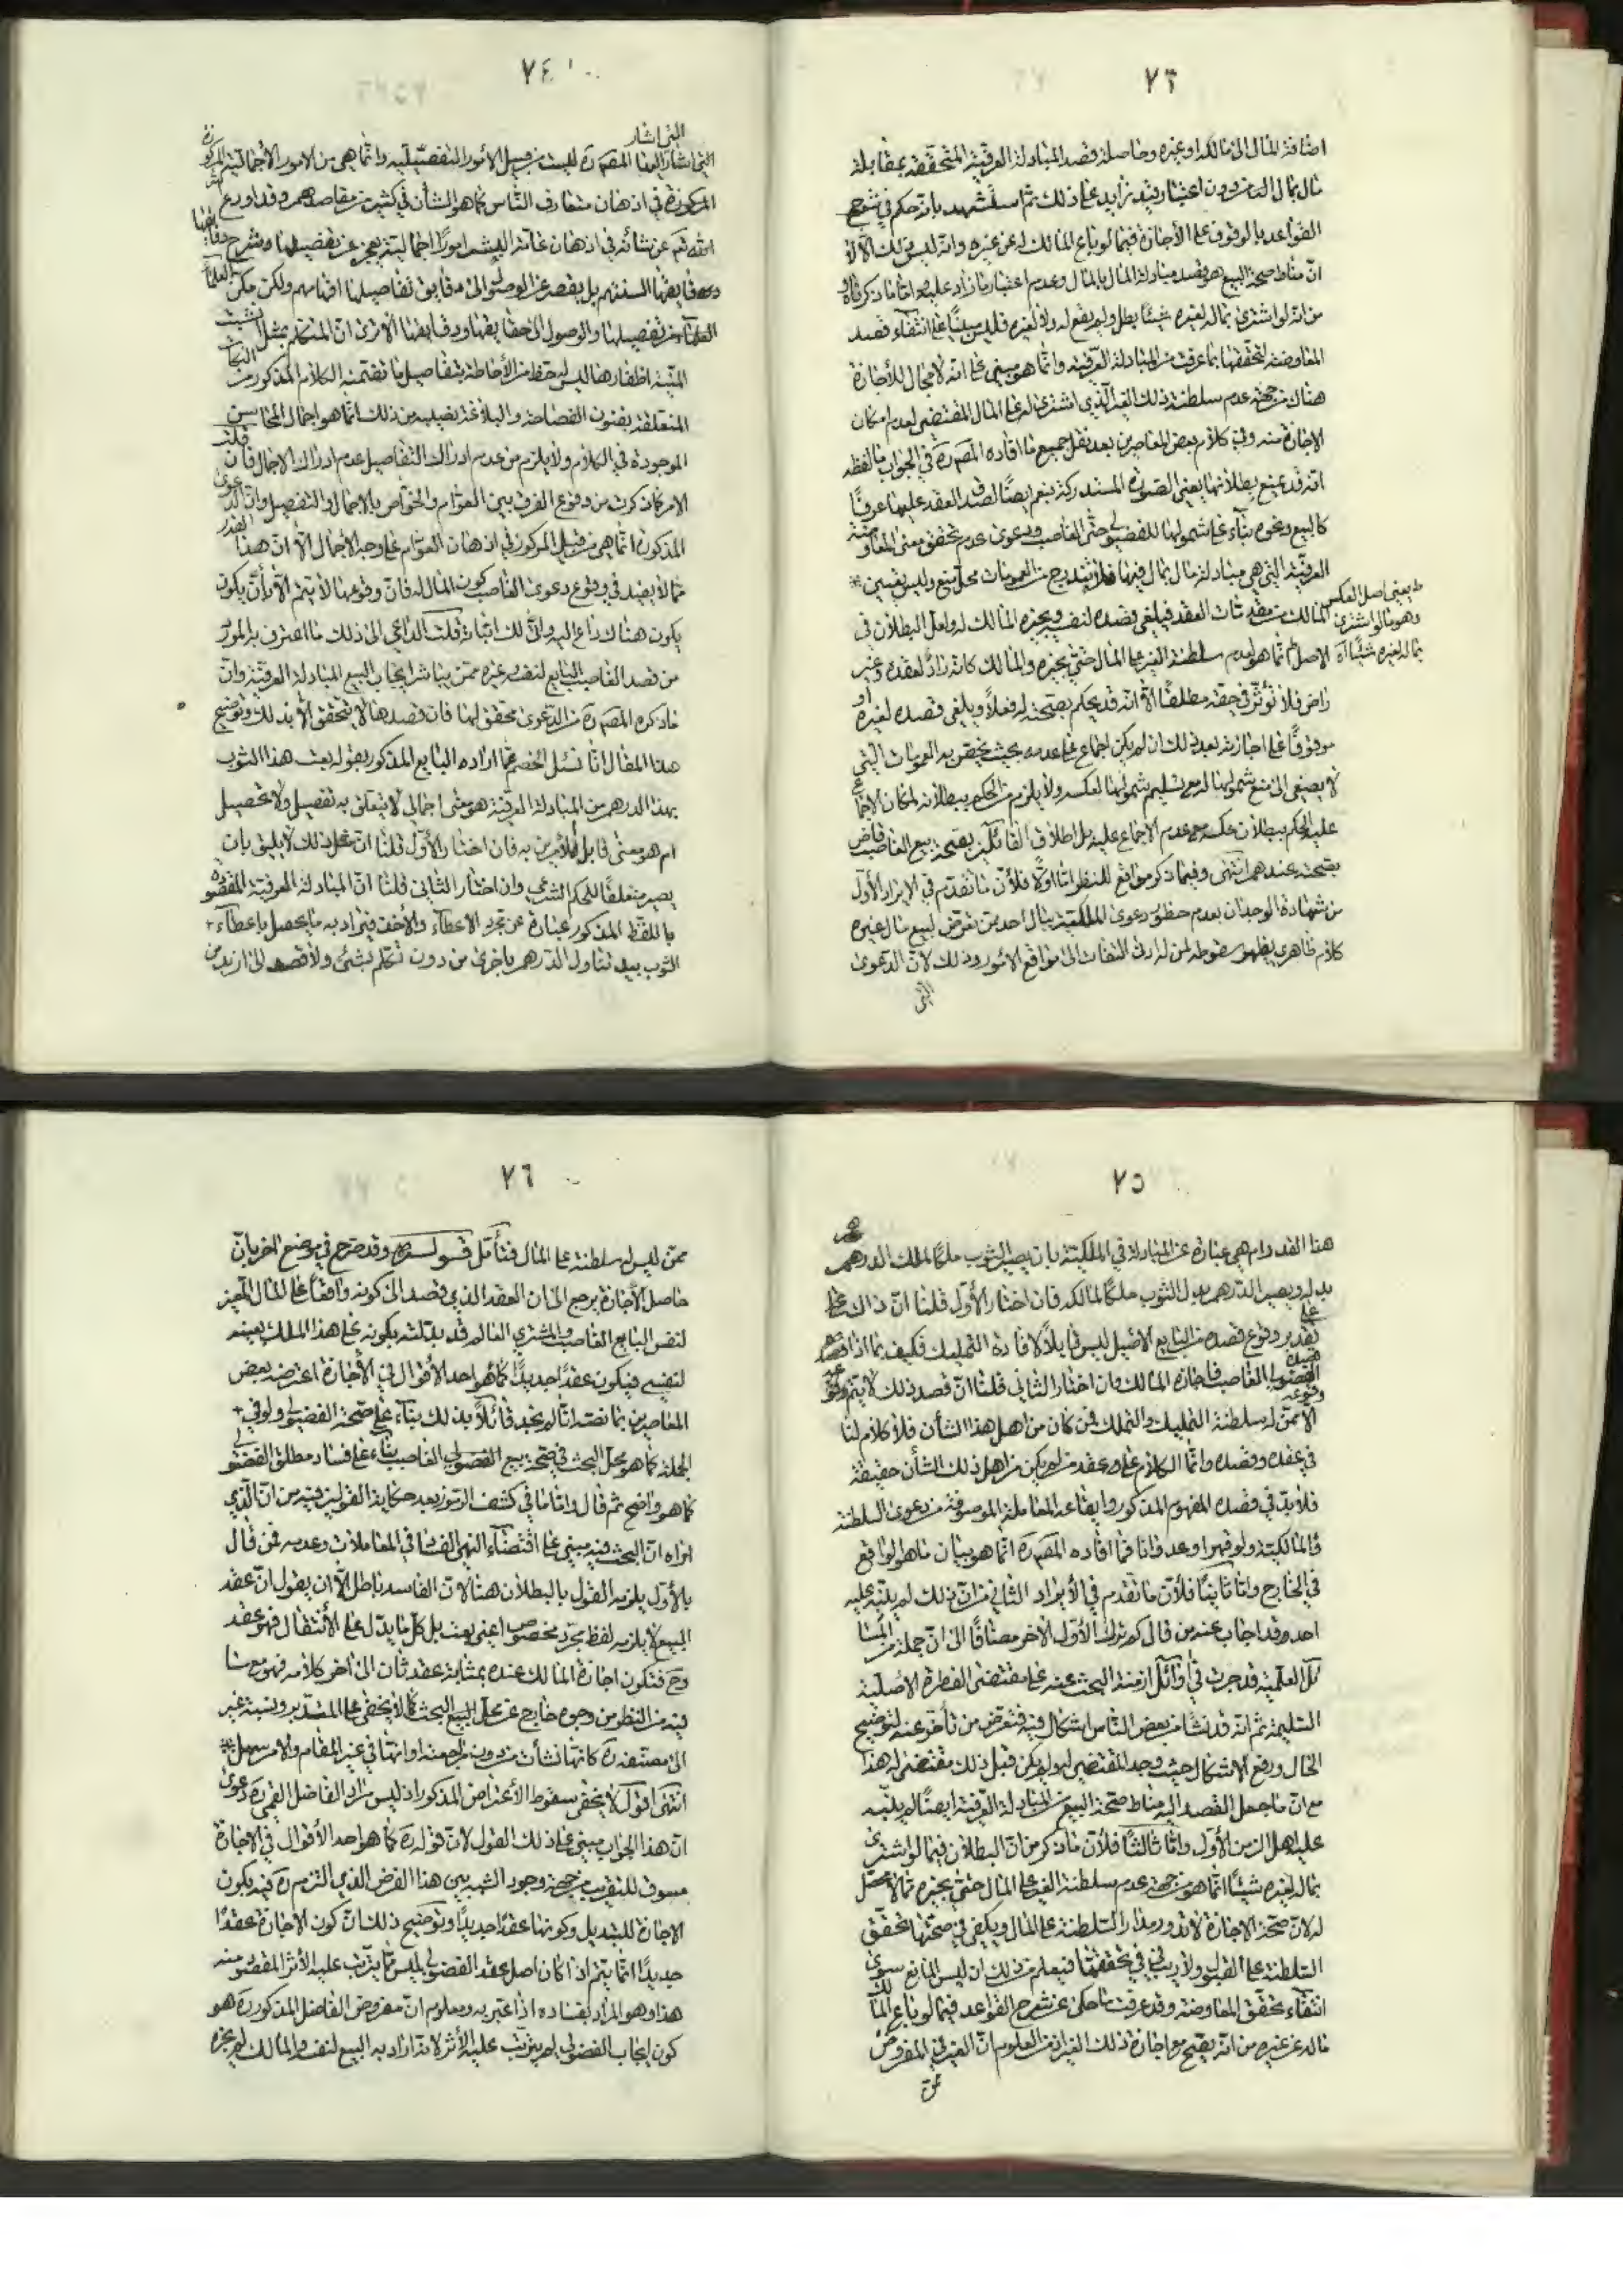 ٧٣
اضافة المال الى مالكه او غيره وحاصله قصد المبادلة العرفية المتحققة بمقابلة
مال بمال من دون اعتبار قيد زايد على ذلك ثم استشهد بانه حكم في شرح
القواعد بالوقوف على الاجازة فيما لو باع المالك له عن غيره وانه ليس ذلك الا لا
ان مناط صحة البيع هو قصد مبادلة المال بالمال وعدم اعتبار ما زاد عليه واما ما ذكرناه
من انه لو اشترى بماله لغيره شيئا بطل ولم يقع له ولا لغيره فليس مبنيا على انتفاء قصد
المعاوضة لتحققها بما عرفت من المبادلة العرفية وانما هو مبني على انه لا مجال للاجازة
هناك من جهة عدم سلطنة ذلك الغير الذي اشترى له على المال المقتضي لعدم امكان
الاجازة منه وفي كلام بعض المعاصرين بعد نقل جميع ما افاده المص ره في الجواب ما لفظه
انه قد يمنع بطلانها يعني الصورة المستدركة بنعم ايضا لصدق العقد عليها عرفا
كالبيع ونحوه بناء على شمولها للفضولي حتى الغاصب ودعوى عدم تحقق معنى المعاوضة
العرفية التي هي مبادلة مال بمال فيها فلا تندرج في العمومات محل منع وليس تعيين *
المالك من مقومات العقد فيلغى قصده لنفسه ويجيزه المالك له ولعل البطلان في
ط يعني اصل العكس
وهو ما لو اشترى
بماله لغيره شيئا اه
الاصل انما هو لعدم سلطنة الغير على المال حتى يجيزه والمالك كانه راد لعقده وغير
راض فلا تؤثر في حقه مطلقا الا انه قد يحكم بصحته له فعلا ويلغى قصده لغيره او
موقوفا على اجازته بعد ذلك ان لم يكن اجماع على عدمه بحيث يخص به العمومات التي
لا يصغى الى منع شمولها له مع تسليم شمولها لعكسه ولا يلزم من الحكم ببطلانه لمكان الاجماع
عليه الحكم ببطلان عكسه مع عدم الاجماع عليه بل اطلاق القائلين بصحة بيع الغاصب قاض
بصحته عندهم انتهى وفيما ذكر مواقع للنظر اما اولا فلان ما تقدم في الايراد الاول
من شهادة الوجدان بعدم خطور دعوى الملكية ببال احد ممن تعرض لبيع مال غيره
كلام ظاهري يظهر سقوطه لمن له ادنى التفات الى مواقع الامور وذلك لان الدعوى
التي
٧٤
التي اشار
التي اشار اليها المص ره ليست من قبيل الامور التفصيلية وانما هي من الامور الاجمالية المركوزة
المركوزة في اذهان متعارف الناس كما هو الشأن في كثير من مقاصدهم وقد اودع
الله تعم عن شانه في اذهان عامة البشر امورا اجمالية يعجز عن تفصيلها وشرح دقايقها
دقايقها السنتهم بل يقصر عن الوصول الى دقايق تفاصيلها افهامهم ولكن مكن العلماء
العلماء من تفصيلها والوصول الى حقايقها ودقايقها الا ترى ان المتكلم بمثل انشبت
المنية اظفارها ليس له حظ من الاحاطة بتفاصيل ما تضمنه الكلام المذكور من النكات
المتعلقة بفنون الفصاحة والبلاغة نصيبه من ذلك انما هو اجمال المحاسن
الموجودة في الكلام ولا يلزم من عدم ادراك التفاصيل عدم ادراك الاجمال فان قلت
الامر كما ذكرت من وقوع الفرق بين العوام والخواص بالاجمال والتفصيل وان الدعوى
المذكورة انما هي من قبيل المركوز في اذهان العوام على وجه الاجمال الا ان هذا القدر
مما لا يفيد في وقوع دعوى الغاصب كون المال له فان وقوعها لا يتم الا بأن يكون
يكون هناك داع اليه وانى لك اثباته قلت الداعي الى ذلك ما اعترف به المورد
من قصد الغاصب البايع لنفسه وغيره ممن يباشر ايجاب البيع المبادلة العرفية وان
ما ذكره المص ره من الدعوى محقق لها فان قصدها لا يتحقق الا بذلك وتوضيح
هذا المقال انا نسئل الخصم عما اراده البايع المذكور بقوله بعت هذا الثوب
بهذا الدرهم من المبادلة العرفية هو معنى اجمالي لا يتعلق به تفصيل ولا تحصيل
ام هو معنى قابل للامرين به فان اختار الاول قلنا ان مثل ذلك لا يليق بان
يصير متعلقا للحكم الشرعي وان اختار الثاني قلنا ان المبادلة العرفية المقصودة
باللفظ المذكور عبارة عن مجرد الاعطاء والاخذ فيراد به ما يحصل باعطاء +
الثوب بيد تناول الدرهم باخرى من دون تكلم بشئ ولا قصد الى ازيد من
٧٥
هذا القدر ام هي عبارة عن المبادلة في الملكية بان يصير الثوب ملكا لمالك الدرهم
بدله ويصير الدرهم بدل الثوب ملكا لمالكه فان اختار الاول قلنا ان ذاك على
تقدير وقوع قصده من البايع الاصيل ليس قابلا لافادة التمليك فكيف بما اذا قصده
الفضولي الغاصب فاجازه المالك وان اختار الثاني قلنا ان قصد ذلك لا يتم وقوعه
الا ممن له سلطنة التمليك والتملك فمن كان من اهل هذا الشأن فلا كلام لنا
في عقده وقصده وانما الكلام على عقد من لم يكن من اهل ذلك الشأن حقيقة
فلا بد في قصده المفهوم المذكور وايقاعه المعاملة الموصوفة من دعوى السلطنة
والمالكية ولو قهرا وعدوانا فما افاده المص ره انما هو بيان ما هو الواقع
في الخارج واما ثانيا فلان ما تقدم في الايراد الثاني من ان ذلك لم ينبه عليه
احد وقد اجاب عنه من قال كم ترك الاول للاخر مضافا الى ان جملة من المسا
ئل العلمية قد جرت في اوائل ازمنة البحث عنه على مقتضى الفطرة الاصلية
السليمة ثم انه قد نشأ من بعض الناس اشكال فيه فتعرض من تأخر عنه لتوضيح
الحال ورفع الاشكال حيث وجد المقتضي له ولم يكن قبل ذلك مقتضى له هذا
مع ان ما جعل القصد اليه مناط صحة البيع من المبادلة العرفية ايضا لم ينبه
عليه اهل الزمن الاول واما ثالثا فلان ما ذكر من ان البطلان فيما لو اشترى
بماله لغيره شيئا انما هو من جهة عدم سلطنة الغير على المال حتى يجيزه مما لا محصل
له لان صحة الاجازة لا تدور مدار السلطنة على المال ويكفي في صحتها تحقق
السلطنة على القبول ولا ريب في تحققها فيعلم من ذلك ان ليس المانع سوى
انتفاء تحقق المعاوضة وقد عرفت ما حكى عن شرح القواعد فيما لو باع المالك
ماله عن غيره من انه يصح مع اجازة ذلك الغير اذ من المعلوم ان الغير في المفروض
ممن
٧٦
ممن ليس له سلطنة على المال فتأمل قوله قدس سره وقد صرح في موضع اخر بان
حاصل الاجازة يرجع الى ان العقد الذي قصد الى كونه واقعا على المال المعين
لنفس البايع الغاصب والمشتري العالم قد بدلته بكونه على هذا الملك بعينه
لنفسي فيكون عقدا جديدا كما هو احد الاقوال في الاجازة اعترضه بعض
المعاصرين بما نصه انا لم نجد قائلا بذلك بناء على صحة الفضولي ولو في +
الجملة كما هو محل البحث في صحة بيع الفضولي الغاصب بناء على فساد مطلق الفضولي
كما هو واضح ثم قال واما ما في كشف الرموز بعد حكاية القولين فيه من ان الذي
اراه ان البحث فيه مبني على اقتضاء النهي الفساد في المعاملات وعدمه فمن قال
بالاول يلزمه القول بالبطلان هنا لان الفاسد باطل الا ان يقول ان عقد
البيع لا يلزمه لفظ مجرد مخصوص اعني بعت بل كل ما يدل على الانتقال فهو عقد
وح فتكون اجازة المالك عنده بمثابة عقد ثان الى اخر كلامه فهو مع ما
فيه من النظر من وجوه خارج عن محل البحث كما لا يخفى على المتدبر ونسبة غير
الى مصنفه ره كانها نشأت من دون مراجعة او انها في غير المقام والامر سهل *
انتهى اقول لا يخفى سقوط الاعتراض المذكور اذ ليس مراد الفاضل القمي ره دعوى
ان هذا الجواب مبني على ذلك القول لان قوله ره كما هو احد الاقوال في الاجازة
مسوق للتقريب من جهة وجود الشبه بين هذا الفرض الذي التزم ره فيه بكون
الاجازة للتبديل وكونها عقدا جديدا وتوضيح ذلك ان كون الاجازة عقدا
جديدا انما يتم اذا كان اصل عقد الفضولي ليس مما يترتب عليه الاثر المقصود منه
هذا وهو المراد بفساده اذا عتبر به ومعلوم ان مفروض الفاضل المذكور ره هو
كون ايجاب الفضولي لم يترتب عليه الاثر لانه اراد به البيع لنفسه والمالك لم يجزه